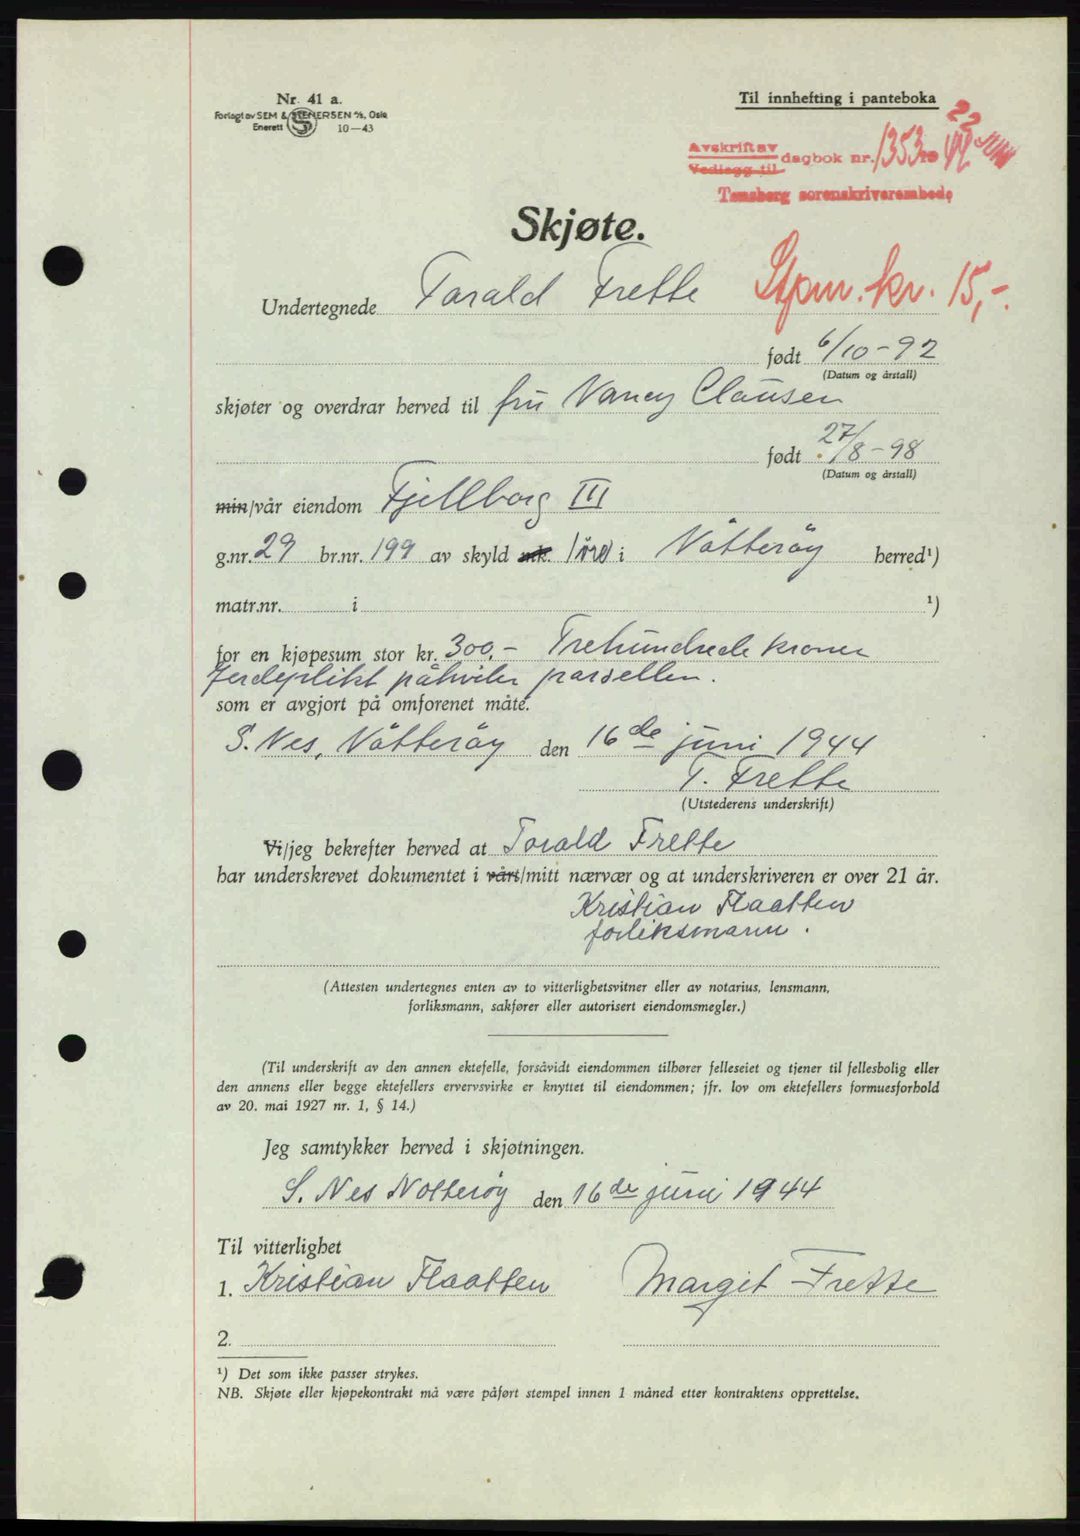 Nr. 41 a.
Forlagt av SEM & STENERSEN A/S, Oslo
Enerett 10—43
Til innhefting i panteboka
Avskrift av
Vedlegg til dagbok nr. 1353 19 44 22 JUNI
Tønsberg sorenskriverembede
Skjøte.
Stpm. kr. 15,-.
Undertegnede Tarald Frette
født 6/10-92
(Datum og årstall)
skjøter og overdrar herved til fru Nancy Clausen
født 27/8-98
(Datum og årstall)
min/vår eiendom Fjellborg III
g.nr. 29 br.nr. 199 av skyld mk. 1 øre i Nötteröy herred¹)
matr.nr. i ¹)
for en kjøpesum stor kr. 300,- Trehundrede kroner
Jerdeplikt påhviler parsellen.
som er avgjort på omforenet måte.
S. Nes, Nötteröy den 16de juni 1944
T. Frette
(Utstederens underskrift)
Vi/jeg bekrefter herved at Torald Frette
har underskrevet dokumentet i vårt/mitt nærvær og at underskriveren er over 21 år.
Kristian Flaatten
forliksmann.
(Attesten undertegnes enten av to vitterlighetsvitner eller av notarius, lensmann,
forliksmann, sakfører eller autorisert eiendomsmegler.)
(Til underskrift av den annen ektefelle, forsåvidt eiendommen tilhører felleseiet og tjener til fellesbolig eller
den annens eller begge ektefellers ervervsvirke er knyttet til eiendommen; jfr. lov om ektefellers formuesforhold
av 20. mai 1927 nr. 1, § 14.)
Jeg samtykker herved i skjøtningen.
S. Nes Notterøy den 16de juni 1944
Til vitterlighet
1. Kristian Flaatten Margit Frette
2.
¹) Det som ikke passer strykes.
NB. Skjøte eller kjøpekontrakt må være påført stempel innen 1 måned etter kontraktens opprettelse.